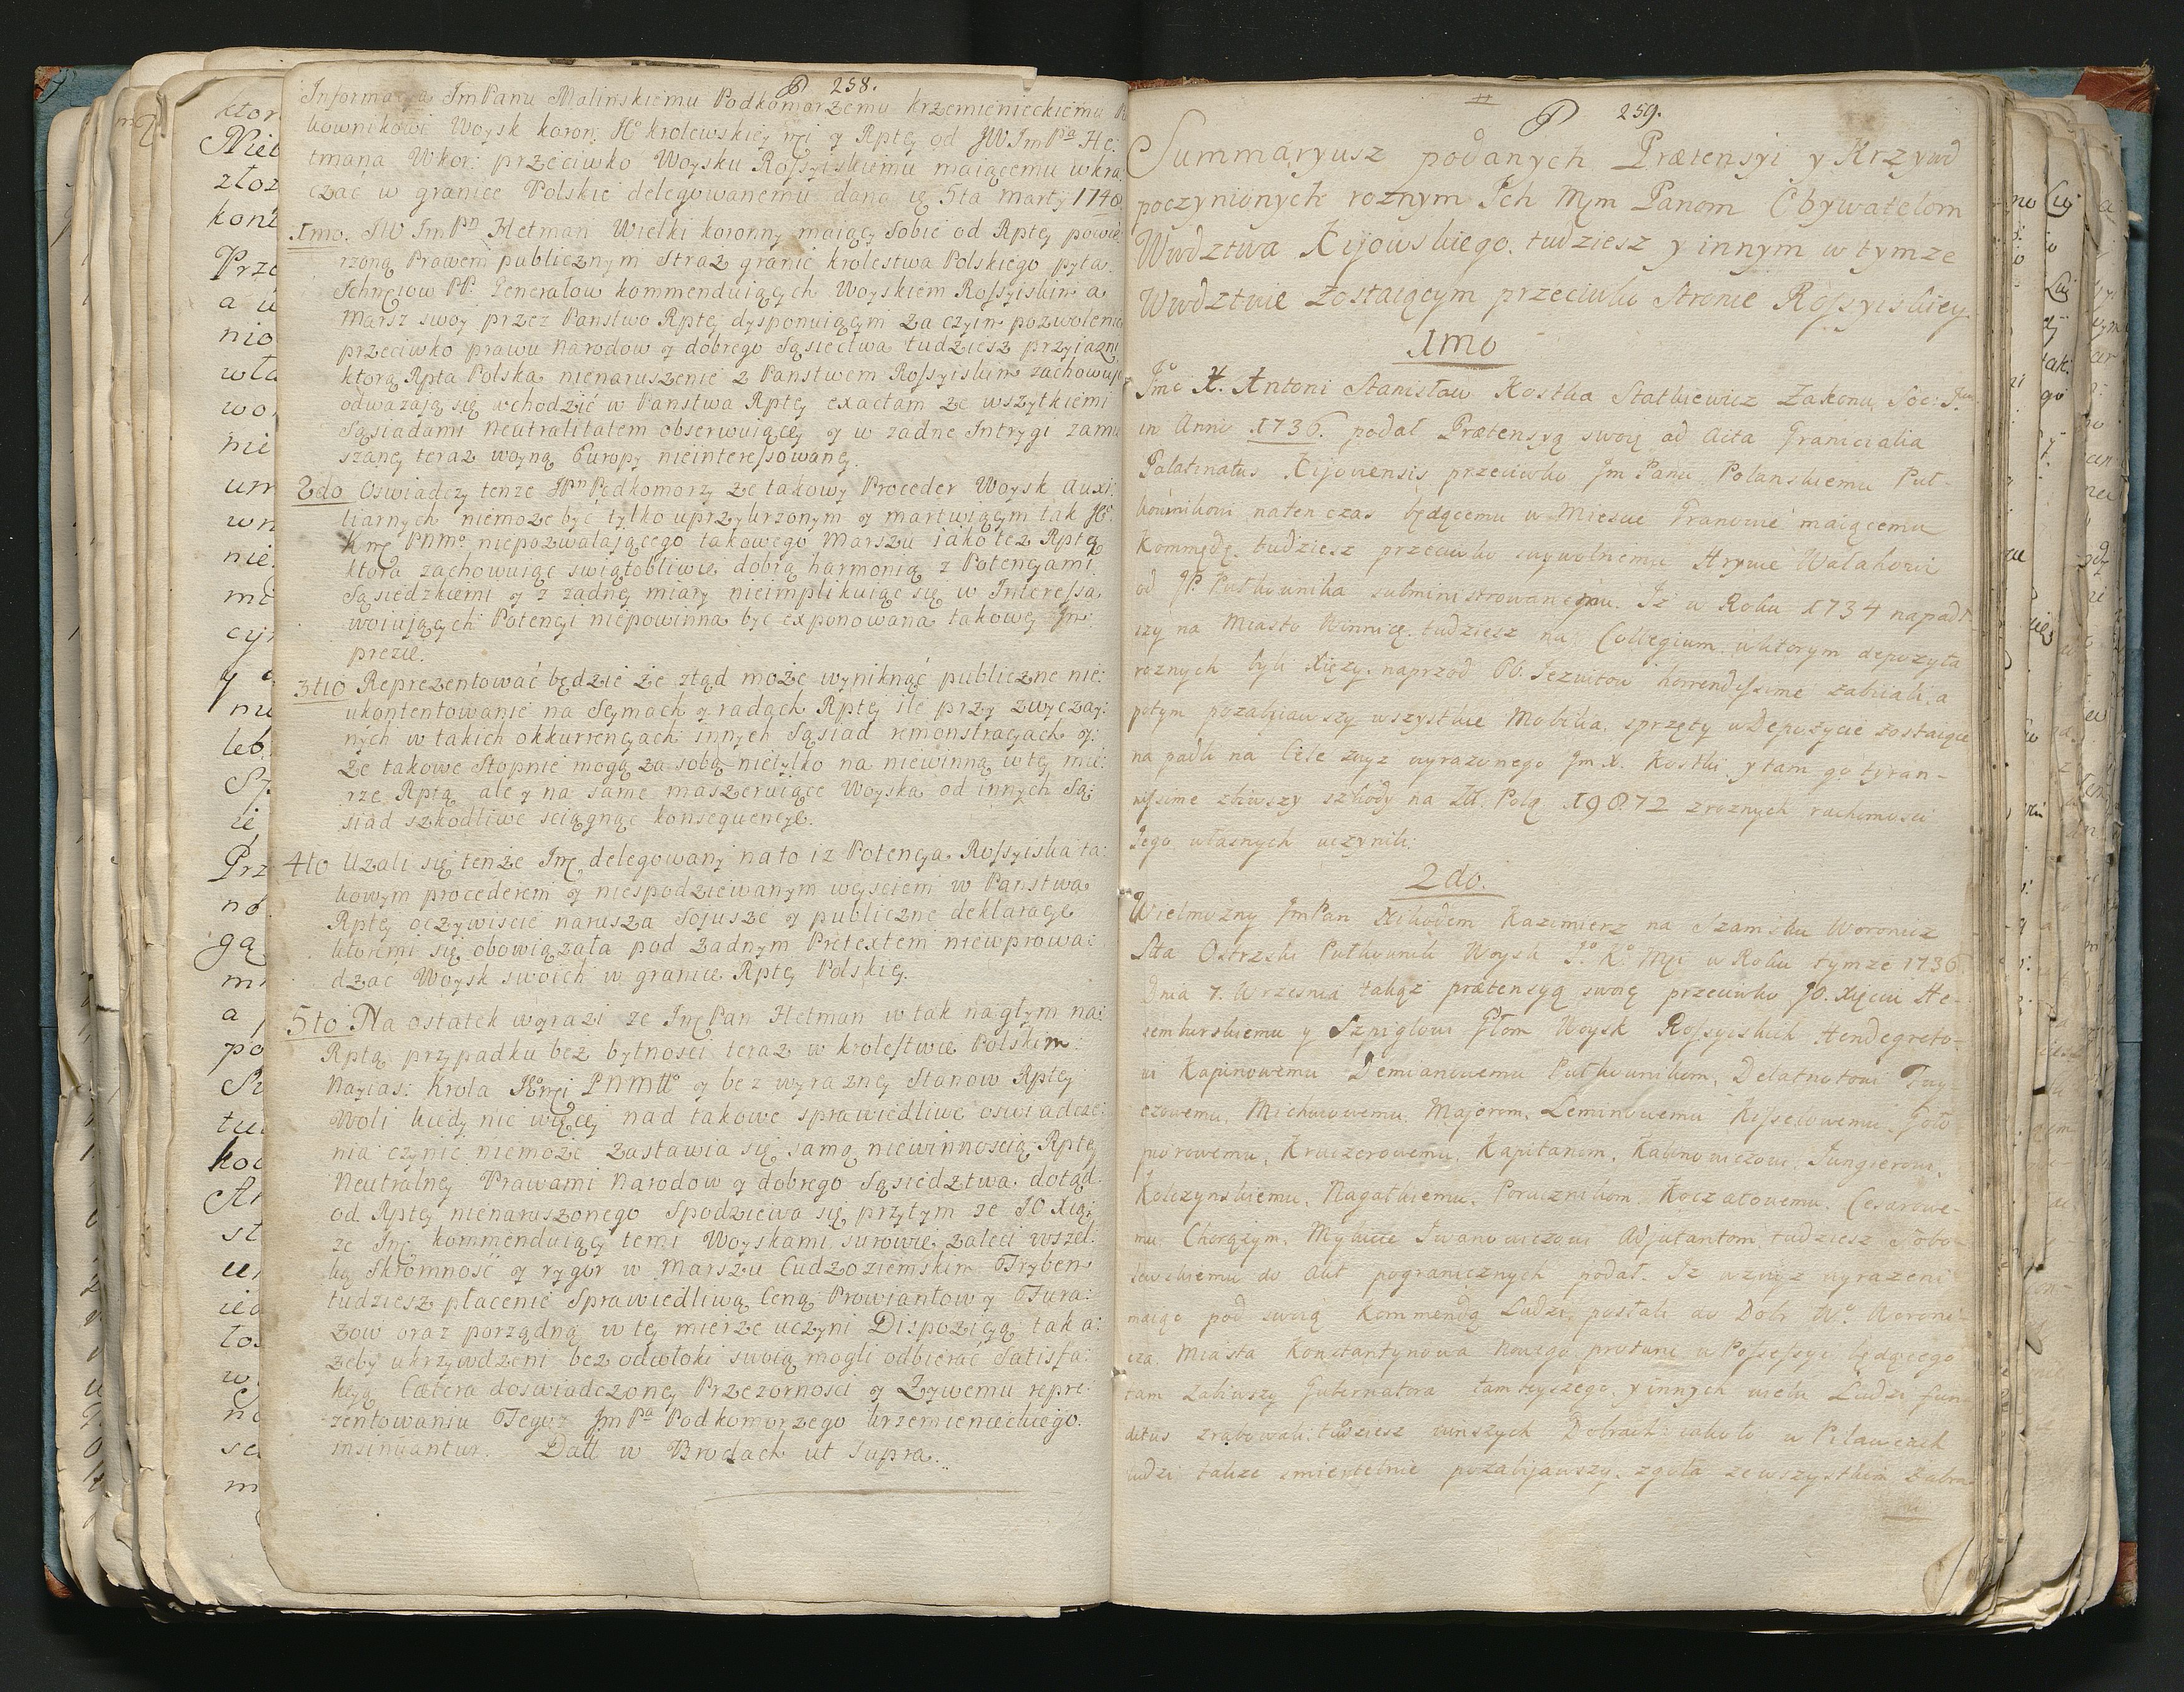 258.
Informacya ImPanu Malinskiemu Podkomorzemu krzemienieckiemu
kownikowi Woysk koron: JKo krolewskiey mci y Rptey od JW ImPa He:
tmana Wkor: przeciwko Woysku Rossyiskiemu maiącemu wkra
czać w granice Polskie delegowanemu dana ie 5ta marty 1748
Imo. JW ImPn Hetman Wielki koronny maiący Sobie od Rptey powie
rzoną Prawem publicznym straż granic krolestwa Polskiego pyta
Ichmciow PP. Generałow kommenduiących Woyskiem Rossyiskim a
marsz swoy przez Panstwo Rptey dysponuiącymi za czyim pozwolenie
przeciwko prawu Narodow y dobrego Sąsiectwa tudziesz przyiazni
ktorą Rpta Polska nienaruszenie z Panstwem Rossyiskim zachowuje
odwazaią się wchodzić w Panstwa Rptey exactam ze wszytkiemi
Sąsiadami Neutralitatem obserwuiącey y w zadne Intrygi zamie
szaney teraz woyną Europy nieinteressowaney.
2do Oswiadczy tenze JPn Podkomorzy że takowy Proceder Woysk auxi:
liarnych niemoze być tylko uprzykrzonym y martwiącym tak JKo
Kmc PNMo niepozwalaiącego takowego Marszu iako tez Rptę
ktora zachowuiąc swiątobliwie dobrą harmonią z Potencyami
Sąsiedzkiemi y z zadney miary nieimplikuiąc się w Interessa
woiuiących Potencyi niepowinna być exponowana takowey Im:
prezie.
3tio Reprezentować będzie że ztąd może wyniknąć publiczne nie:
ukontentowanie na Seymach y radach Rptey ile przy zwyczay:
nych w takich okkurrencyach innych Sąsiad remonstracyach y:
że takowe Stopnie mogą za sobą nietylko na niewinną w tey mie:
rze Rptą ale y na same maszeruiące Woyska od innych Są:
siad szkodliwe sciągnąć konsequencye.
4to Uzali się tenże Imc delegowany na to iz Potencya Rossyiska ta:
kowym procederem y niespodziewanym weysciem w Panstwa
Rptey oczywiscie narusza Sojusze y publiczne deklaracye
ktoremi się obowiązała pod zadnym Pretextem niewprowa:
dzać Woysk swoich w granice Rptey Polskiey.
5to Na ostatek wyrazi ze Imc Pan Hetman w tak nagłym na:
Rptą przypadku bez bytnosci teraz w krolestwie Polskim
Nayias: Krola JKomci PNMo y bez wyrazney Stanow Rptey
Woli kiedy nic więcey nad takowe sprawiedliwe oswiadcze:
nia czynić niemoże zastawia się samą niewinnoscią Rptey
Neutralney Prawami Narodow y dobrego Sąsiedztwa dotąd
od Rptey nienaruszonego Spodziewa się przytym ze JO Xią:
że Imc kommenduiący temi Woyskami surowie zaleci wszel:
ką Skromność y rygor w Marszu Cudzoziemskim Tryben
tudziesz płacenie Sprawiedliwą Ceną Prowiantow y Fura:
zow oraz porządną w tey mierze uczyni Dispozycyą tak a:
żeby ukrzywdzeni bez odwłoki swoią mogli odbierać Satisfa:
kcyą Cætera doswiadczoney Przezornosci y Zywemu repre:
zentowaniu Teguz ImPa Podkomorzego krzemienieckiego.
insinuantur. Datt w Brodach ut supra.
259.
Summaryusz podanych Prætensyi y Krzywd
poczynionych roznym Ich Mcm Panom Obywatelom
Wwdztwa Kijowskiego. tudziesz y innym w tymze
Wwdztwie zostaiącym przeciwko Stronie Rossyiskiey
1mo
Jmc X. Antoni Stanisław Kostka Statkiewicz Zakonu Soc: J
in Anno 1736. podał Prætensyą swoię ad Acta Granicialia
Palatinatus Kijoviensis przeciwko Jm Panu Polanskiemu Puł-
kownikowi naten czas będącemu w Miescie Granowie maiącemu
Kommędę. tudziesz przeciwko swywolnemu Hrywie Wałahowi
od JP. Pułkownika subministrowanemu. Iż w Roku 1734 napadł-
szy na Miasto Winnicę. tudziesz na Collegium w ktorym depozyta
roznych byli Xięży. naprzod OO. Jezuitow horrendissime zabiiali. a
potym pozabieiawszy wszystkie Mobilia. sprzęty w Depozycie zostaiące
na padli na Cele zwyz wyrazonego Jm X. Kostki y tam go tyran-
nissime zbiwszy szkody na Zł. Polq 19872 z roznych ruchomosci
Jego własnych uczynili.
2do.
Wielmozny JmPan Nikodem Kazimierz na Szamsku Woronicz
Stta Ostrzski Pułkownik Woysk J. K. Mci w Roku tymze 1736
Dnia 7. Wrzesnia takąż prætensyą swoię przeciwko JO. Xięciu He-
semburskiemu y Szpiglowi Głom Woysk Rossyiskich Hendegreto-
wi Kapinowemu Demianowemu Pułkownikom.
Michnowemu Majorom. Leminowemu Kisselowemu. Goło-
pirowemu. Kruczerowemu. Kapitanom. Kalinowiczowi. Jungierowi.
Kolczynskiemu. Nagatkiemu. Porucznikom. Koczatowemu. Cesarowe-
mu Chorążym. Mykicie Iwanowiczowi Adjutantom. tudziesz Sobo-
lewskiemu do Akt pogranicznych podał. Iz wzwyz wyrazeni
maiąc pod swoią Kommendą Ludzi. posłali do Dobr W. Woroni-
cza Miasta Konstantynowa Nowego protunc w Possessyi będącego
tam zabiwszy Gubernatora tamteyszego. y innych wielu Ludzi fun-
ditus zrabowali. tudziesz winszych Dobrach: iako to w Pilawcach
ludzi takze smiertelnie pozabijawszy. zgoła ze wszystkim zabra